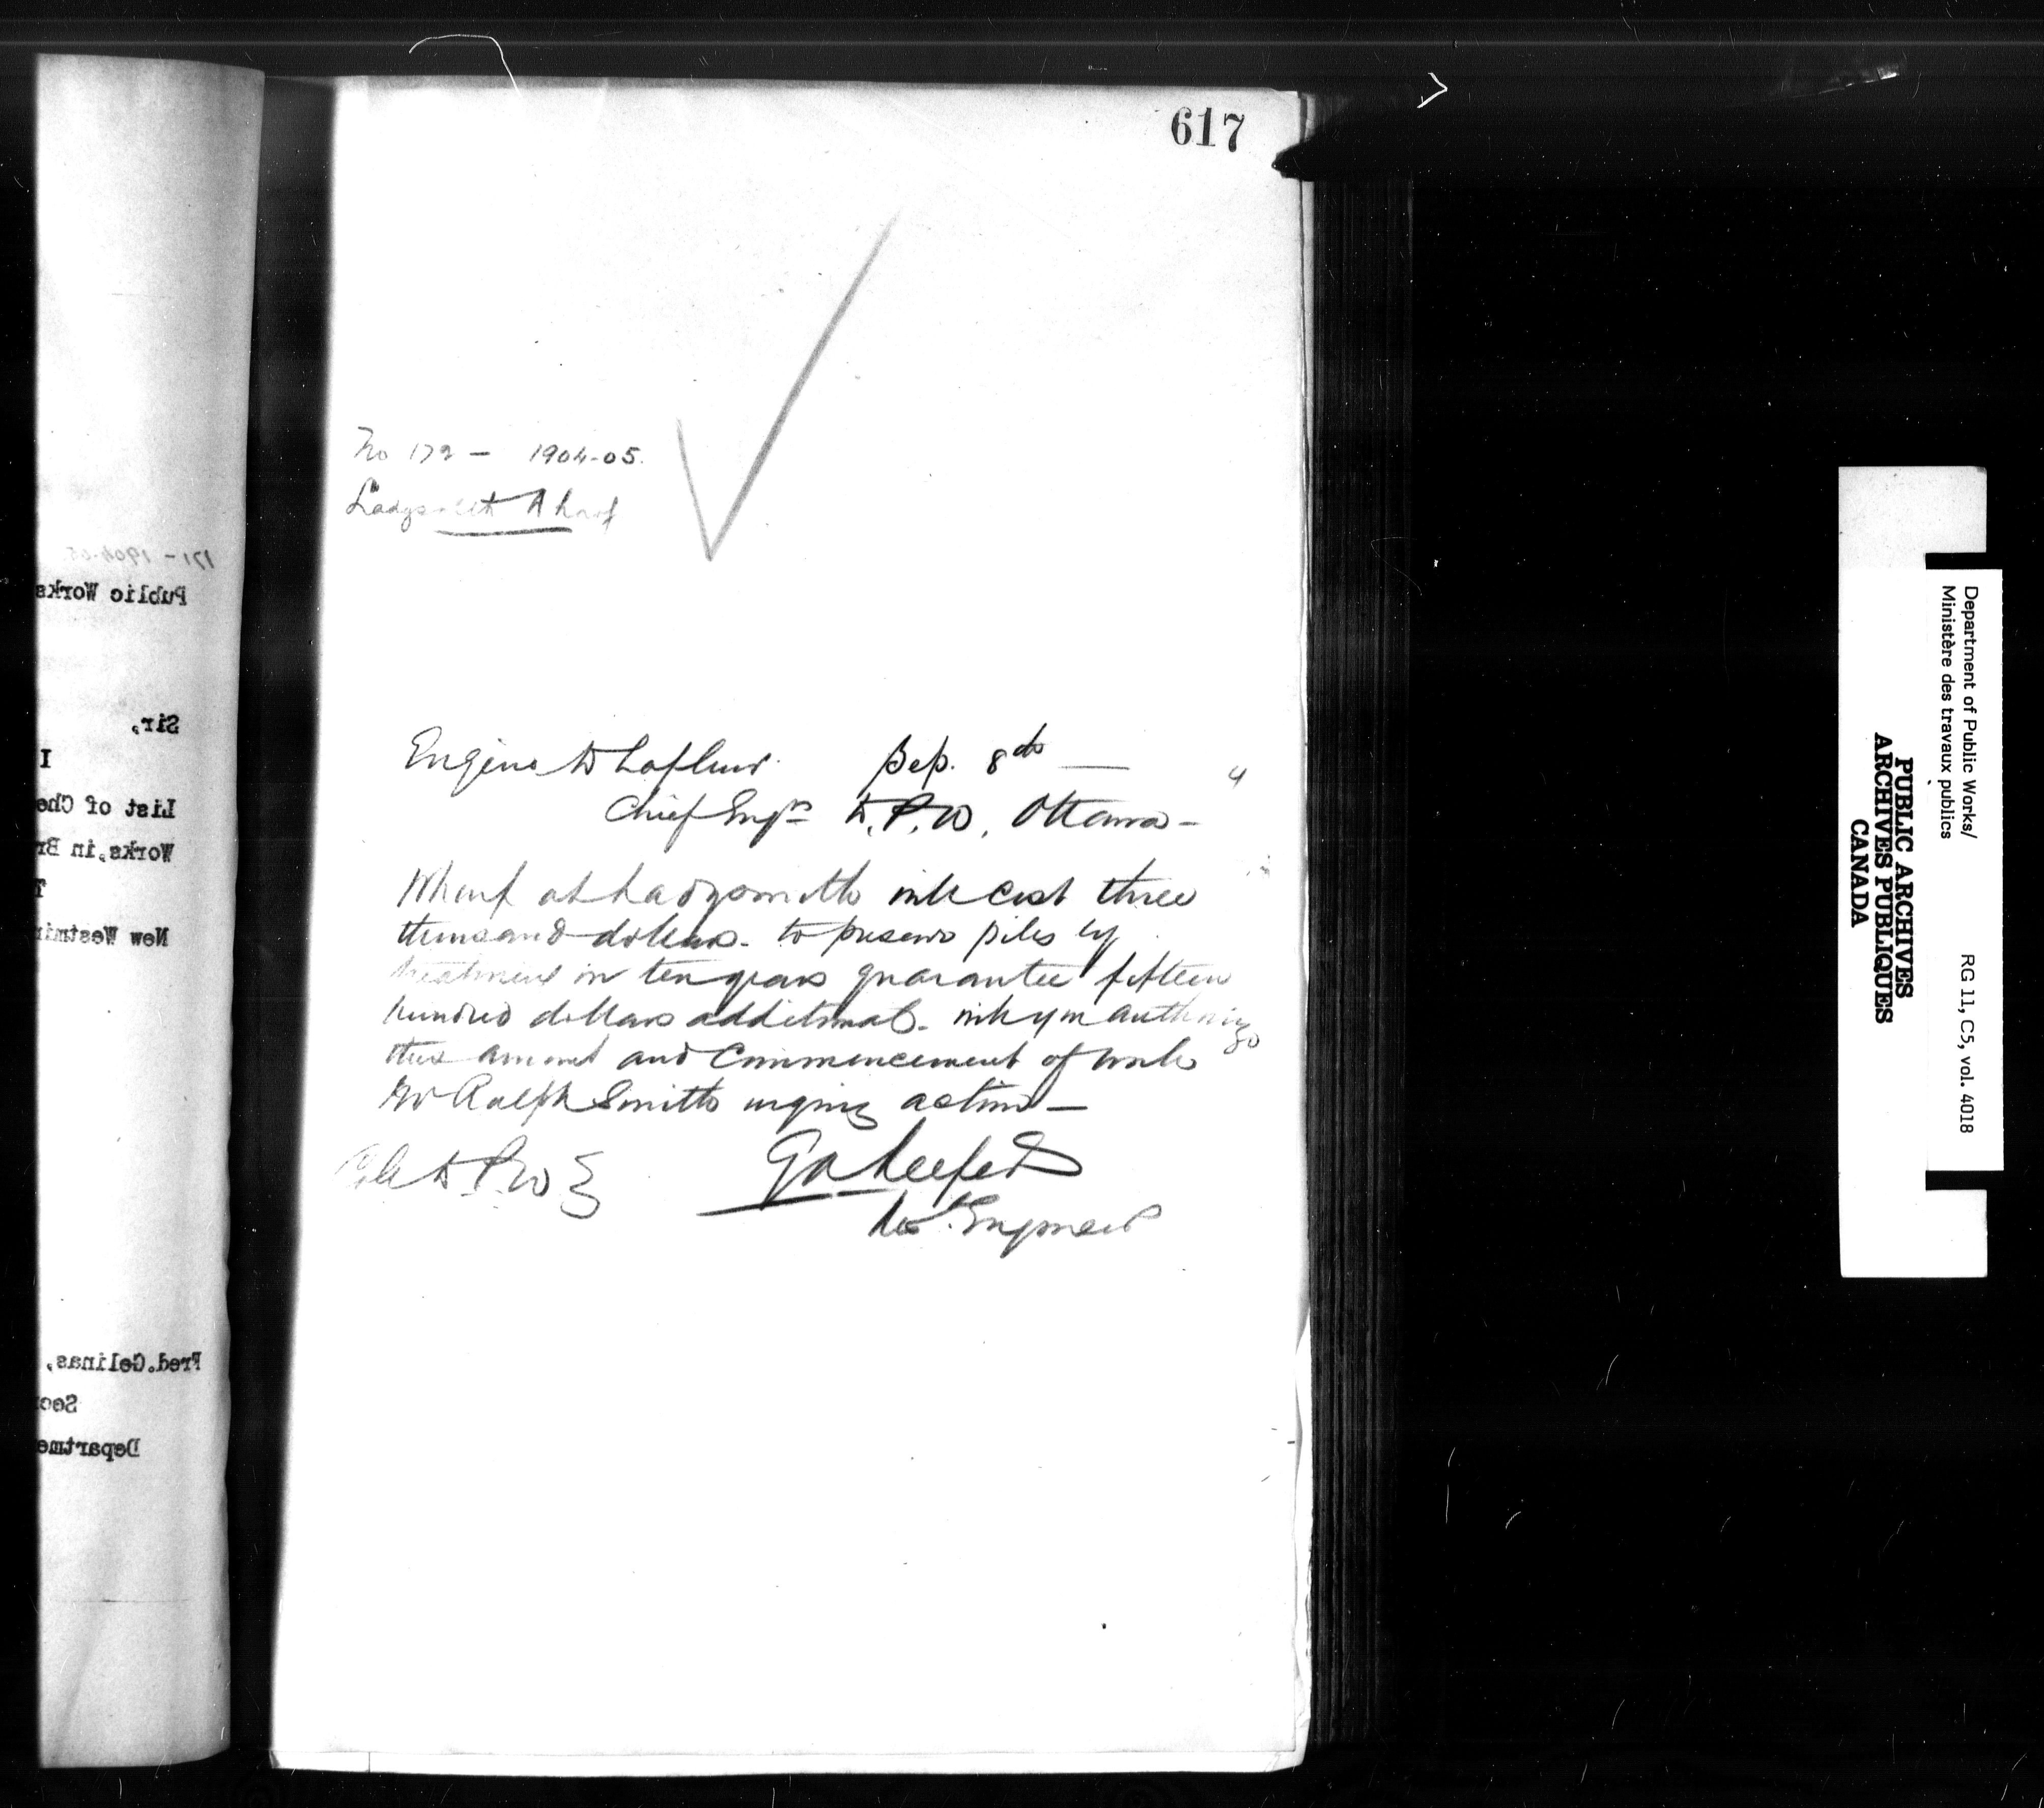 617
No 172 - 1904-05.
Ladysmith Wharf
Eugene D Lafleur. Sep. 8th — 4
Chief Engr D.P.W. Ottawa -
Wharf at Ladysmith will cost three
thousand dollars - to preserve piles by
treatment in ten years guarantee fifteen
hundred dollars additional - will you authorize
this amount and commencement of work
Mr Ralph Smith urging action —
D.P.W
G A Keefer
Rest. Engineer
171 - 1904-05
Public Works
Sir,
I
List of Che
Works, in Br
T
New Westmin
Fred. Gelinas,
Sec
Departme
Department of Public Works/
Ministère des travaux publics
RG 11, C5, vol. 4018
PUBLIC ARCHIVES
ARCHIVES PUBLIQUES
CANADA